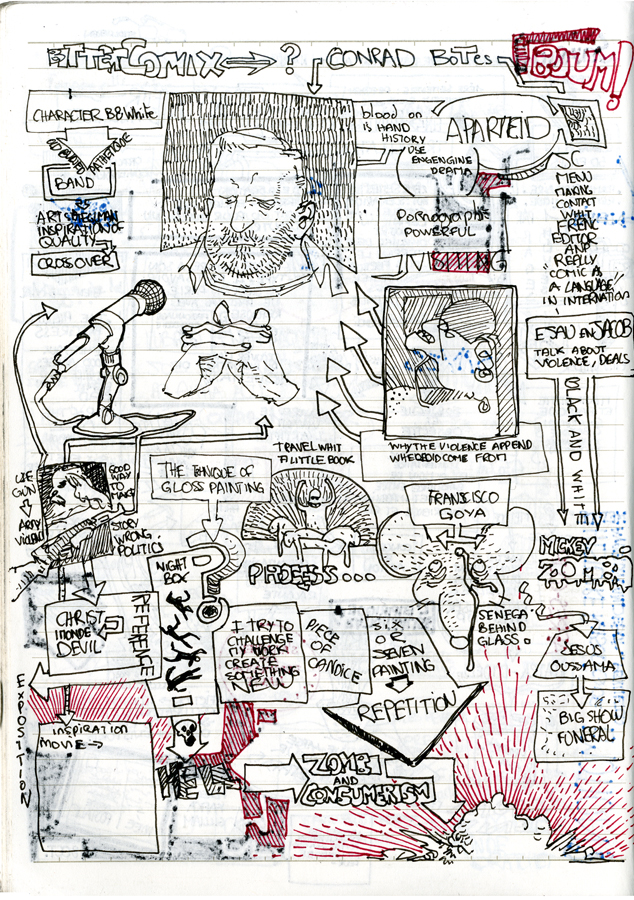 BITTERCOMIX ? CONRAD BOTES
CHARACTER B&White
PATHETIQUE
BAND
INSPIRATION OF
QUALITY
CROSS OVER
blood on
is HAND
HISTORY
USE
ENGENGINE
DRAMA
APARTEID
Pornographic
POWERFUL
SC
MENU
MAKING
CONTACT
WHIT
FRENC
EDITOR
AAP
REALLY
"COMIC AS
A LANGUAGE"
IN INTERNATION
ESAU EN JACOB
TALK ABOUT
VIOLENCE, DEALS
BLACK AND WHITE
WHY THE VIOLENCE APPEND
WHERE DID COME FROM
TRAVEL WHIT
A LITTLE BOOK
THE TONIQUE OF
GLOSS PAINTING
FRANCISCO
GOYA
USE
GUN
ARTY
VIOLENT
GOOD
WAY
TO
MAKE
STORY
WRONG
POLITICS
PROCESS...
MICKEY
ZOMBI
NIGHT
BOX
CHRIST
MONDE
DEVIL
REFERENCE
I TRY TO
CHALLENGE
MY WORK
CREATE
SOMETHING
NEW
PIECE
OF
CANDICE
SIX
OR
SEVEN
PAINTING
REPETITION
SENEGAL
BEHIND
GLASS.
JESOS
OUSSAMA
BIG SHOW
FUNERAL
EXPOSITION
INSPIRATION
MOVIE
ZOMBI
AND
CONSUMERISM